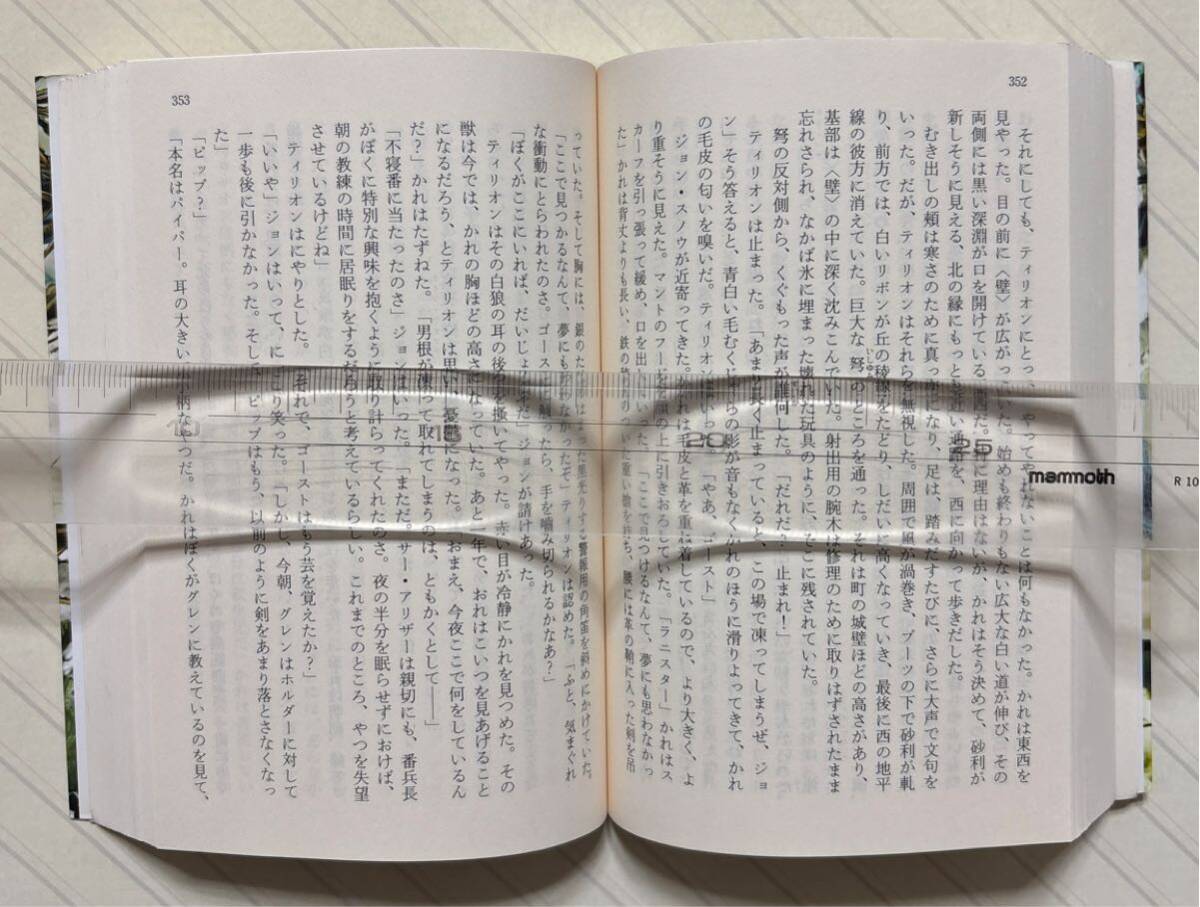 352
それにしても、ティリオンにとって、やってやれないことは何もなかった。かれは東西を
見やった。目の前に〈壁〉が広がっていた。始めも終わりもない広大な白い道が伸び、その
両側には黒い深淵が口を開けている。西だ。特に理由はないが、かれはそう決めて、砂利が
新しそうに見える、北の縁にもっとも近い通路を、西に向かって歩きだした。
むき出しの頬は寒さのために真っ赤になり、足は、踏みだすたびに、さらに大声で文句を
いった。だが、ティリオンはそれらを無視した。周囲で風が渦巻き、ブーツの下で砂利が軋
り、前方では、白いリボンが丘の稜線をたどり、しだいに高くなっていき、最後に西の地平
線の彼方に消えていた。巨大な弩のところを通った。それは町の城壁ほどの高さがあり、
基部は〈壁〉の中に深く沈みこんでいた。射出用の腕木は修理のために取りはずされたまま
忘れさられ、なかば氷に埋まった壊れた玩具のように、そこに残されていた。
弩の反対側から、くぐもった声が誰何した。「だれだ？ 止まれ！」
ティリオンは止まった。「あまり長く止まっていると、この場で凍ってしまうぜ、ジョ
ン」そう答えると、青白い毛むくじゃらの影が音もなくかれのほうに滑りよってきて、かれ
の毛皮の匂いを嗅いだ。ティリオンはいった。「やあ、ゴースト」
ジョン・スノウが近寄ってきた。かれは毛皮と革を重ね着しているので、より大きく、よ
り重そうに見えた。マントのフードを頭の上に引きおろしていた。「ラニスター」かれはス
カーフを引っ張って緩め、口を出していった。「ここで見つけるなんて、夢にも思わなかっ
た」かれは背丈よりも長い、鉄の穂のついた重い槍を持ち、腰には革の鞘に入った剣を吊
353
っていた。そして胸には、銀のたがのはまった黒光りする警報用の角笛を斜めにかけていた。
「ここで見つかるなんて、夢にも思わなかったぞ」ティリオンは認めた。「ふと、気まぐれ
な衝動にとらわれたのさ。ゴーストに触ったら、手を嚙み切られるかなあ？」
「ぼくがここにいれば、だいじょうぶだ」ジョンが請けあった。
ティリオンはその白狼の耳の後を搔いてやった。赤い目が冷静にかれを見つめた。その
獣は今では、かれの胸ほどの高さになっていた。あと一年で、おれはこいつを見あげること
になるだろう、とティリオンは思い、憂鬱になった。「おまえ、今夜ここで何をしているん
だ？」かれはたずねた。「男根が凍って取れてしまうのは、ともかくとして――」
「不寝番に当たったのさ」ジョンはいった。「まただ。サー・アリザーは親切にも、番兵長
がぼくに特別な興味を抱くように取り計らってくれたのさ。夜の半分を眠らせずにおけば、
朝の教練の時間に居眠りをするだろうと考えているらしい。これまでのところ、やつを失望
させているけどね」
ティリオンはにやりとした。「それで、ゴーストはもう芸を覚えたか？」
「いいや」ジョンはいって、にっこり笑った。「しかし、今朝、グレンはホルダーに対して
一歩も後に引かなかった。そしてピップはもう、以前のように剣をあまり落とさなくなっ
た」
「ピップ？」
「本名はパイパー。耳の大きい小柄なやつだ。かれはぼくがグレンに教えているのを見て、
15
20
25
mammoth
R 10